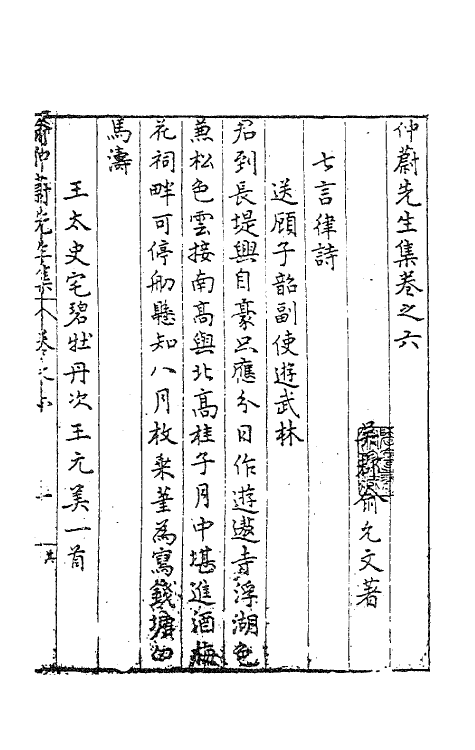 仲蔚先生集卷之六
吳郡俞允文著
七言律詩
送顧子韶副使遊武林
君到長堤興自豪只應分日作遊遨寺浮湖色
兼松色雲接南高與北高桂子月中堪進酒梅
花祠畔可停舠懸知八月枚乘筆為寫錢塘白
馬濤
王太史宅碧牡丹次王元美一首
俞仲蔚先生集 卷之六 一